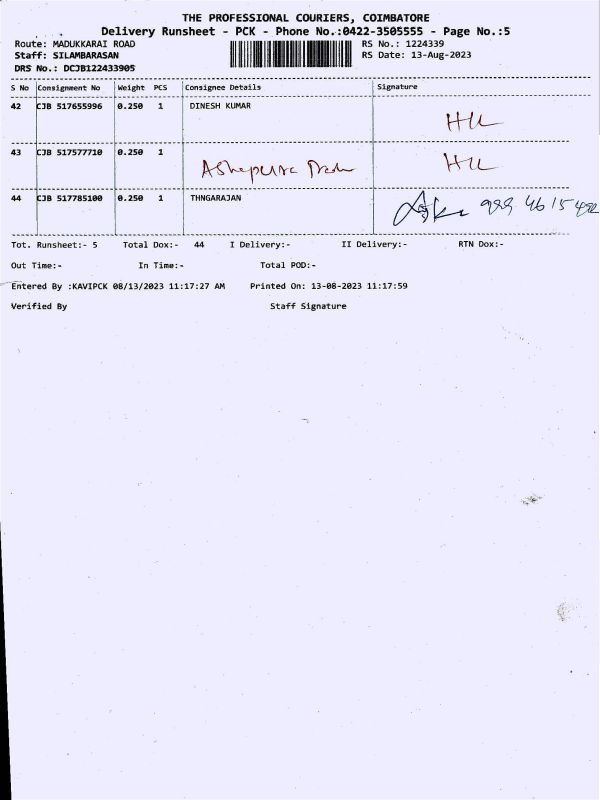 THE PROFESSIONAL COURIERS, COIMBATORE
Delivery Runsheet - PCK - Phone No.:0422-3505555 - Page No.:5
Route: MADUKKARAI ROAD RS No.: 1224339
Staff: SILAMBARASAN RS Date: 13-Aug-2023
DRS No.: DCJB122433905
S No Consignment No Weight PCS Consignee Details Signature
42 CJB 517655996 0.250 1 DINESH KUMAR
43 CJB 517577710 0.250 1
44 CJB 517785100 0.250 1 THNGARAJAN
Tot. Runsheet:- 5 Total Dox:- 44 I Delivery:- II Delivery:- RTN Dox:-
Out Time:- In Time:- Total POD:-
Entered By :KAVIPCK 08/13/2023 11:17:27 AM Printed On: 13-08-2023 11:17:59
Verified By Staff Signature